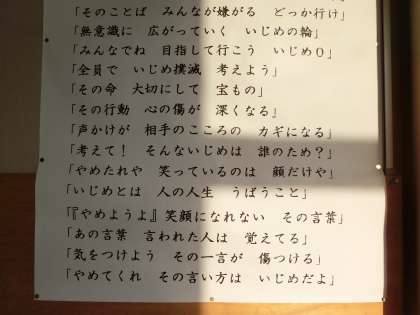 「そのことば　みんなが嫌がる　どっか行け」
「無意識に　広がっていく　いじめの輪」
「みんなでね　目指して行こう　いじめ０」
「全員で　いじめ撲滅　考えよう」
「その命　大切にして　宝もの」
「その行動　心の傷が　深くなる」
「声かけが　相手のこころの　カギになる」
「考えて！　そんないじめは　誰のため？」
「やめたれや　笑っているのは　顔だけや」
「いじめとは　人の人生　うばうこと」
「『やめようよ』笑顔になれない　その言葉」
「あの言葉　言われた人は　覚えてる」
「気をつけよう　その一言が　傷つける」
「やめてくれ　その言い方は　いじめだよ」